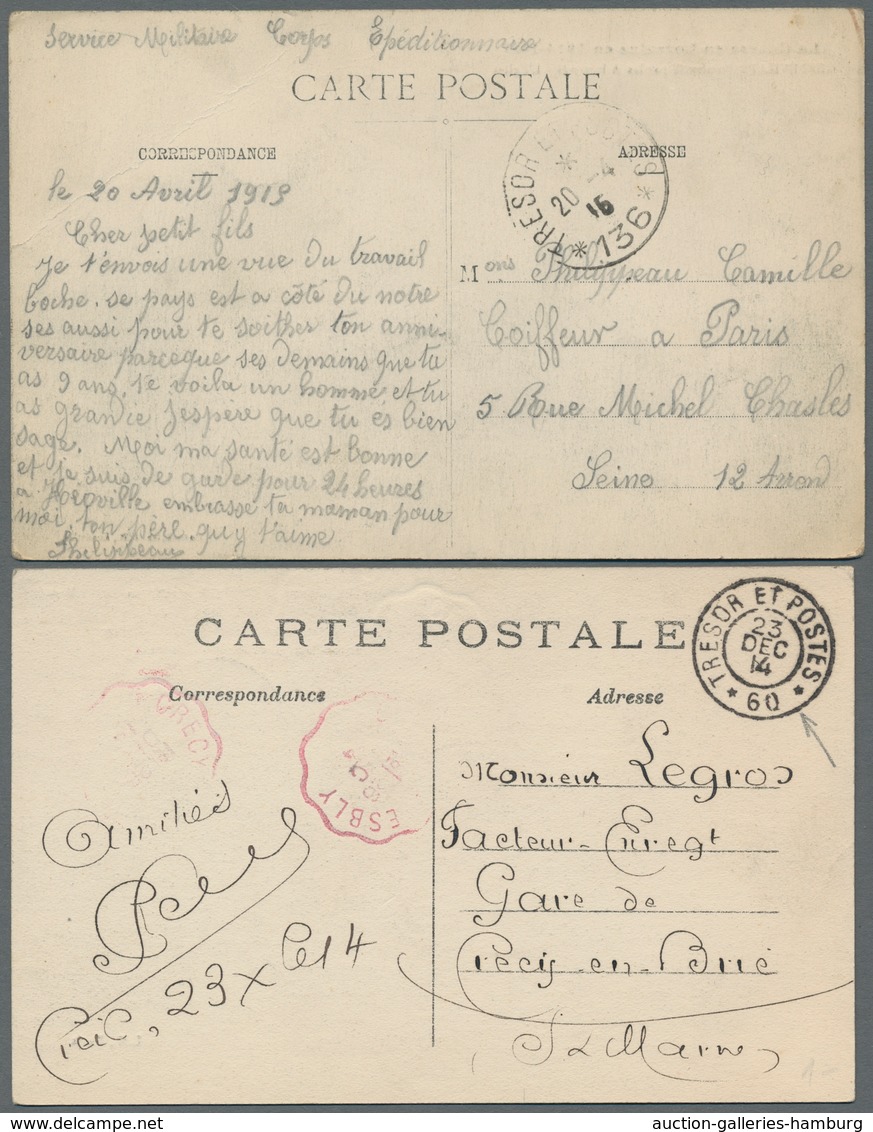 Service Militaire Corps Epéditionnaire
CARTE POSTALE
CORRESPONDANCE
ADRESSE
TRESOR ET POSTES
* 136 *
20 4
15
le 20 Avril 1915
Cher petit fils
Je t'envois une vue du travail
boche. se pays est a côté du notre
ses aussi pour te soither ton anni-
versaire parceque ses demains que tu
as 9 ans, te voila un homme et tu
as grandie J'espère que tu es bien
sage. Moi ma santé est bonne
et je suis de garde pour 24 heures
a Heoville embrasse ta maman pour
moi, ton père quy t'aime
Mons Philippeau Camille
Coiffeur a Paris
5 Rue Michel Chasles
Seine 12 Arrond
CARTE POSTALE
Correspondance
Adresse
TRESOR ET POSTES
23
DEC
14
* 60 *
CRECY
ESBLY
Amitiés
Creil, 23 Xbre 14
Monsieur Legros
Facteur-Enregt
Gare de
Crécy-en-Brie
S & Marne
1-
auction-galleries-hamburg